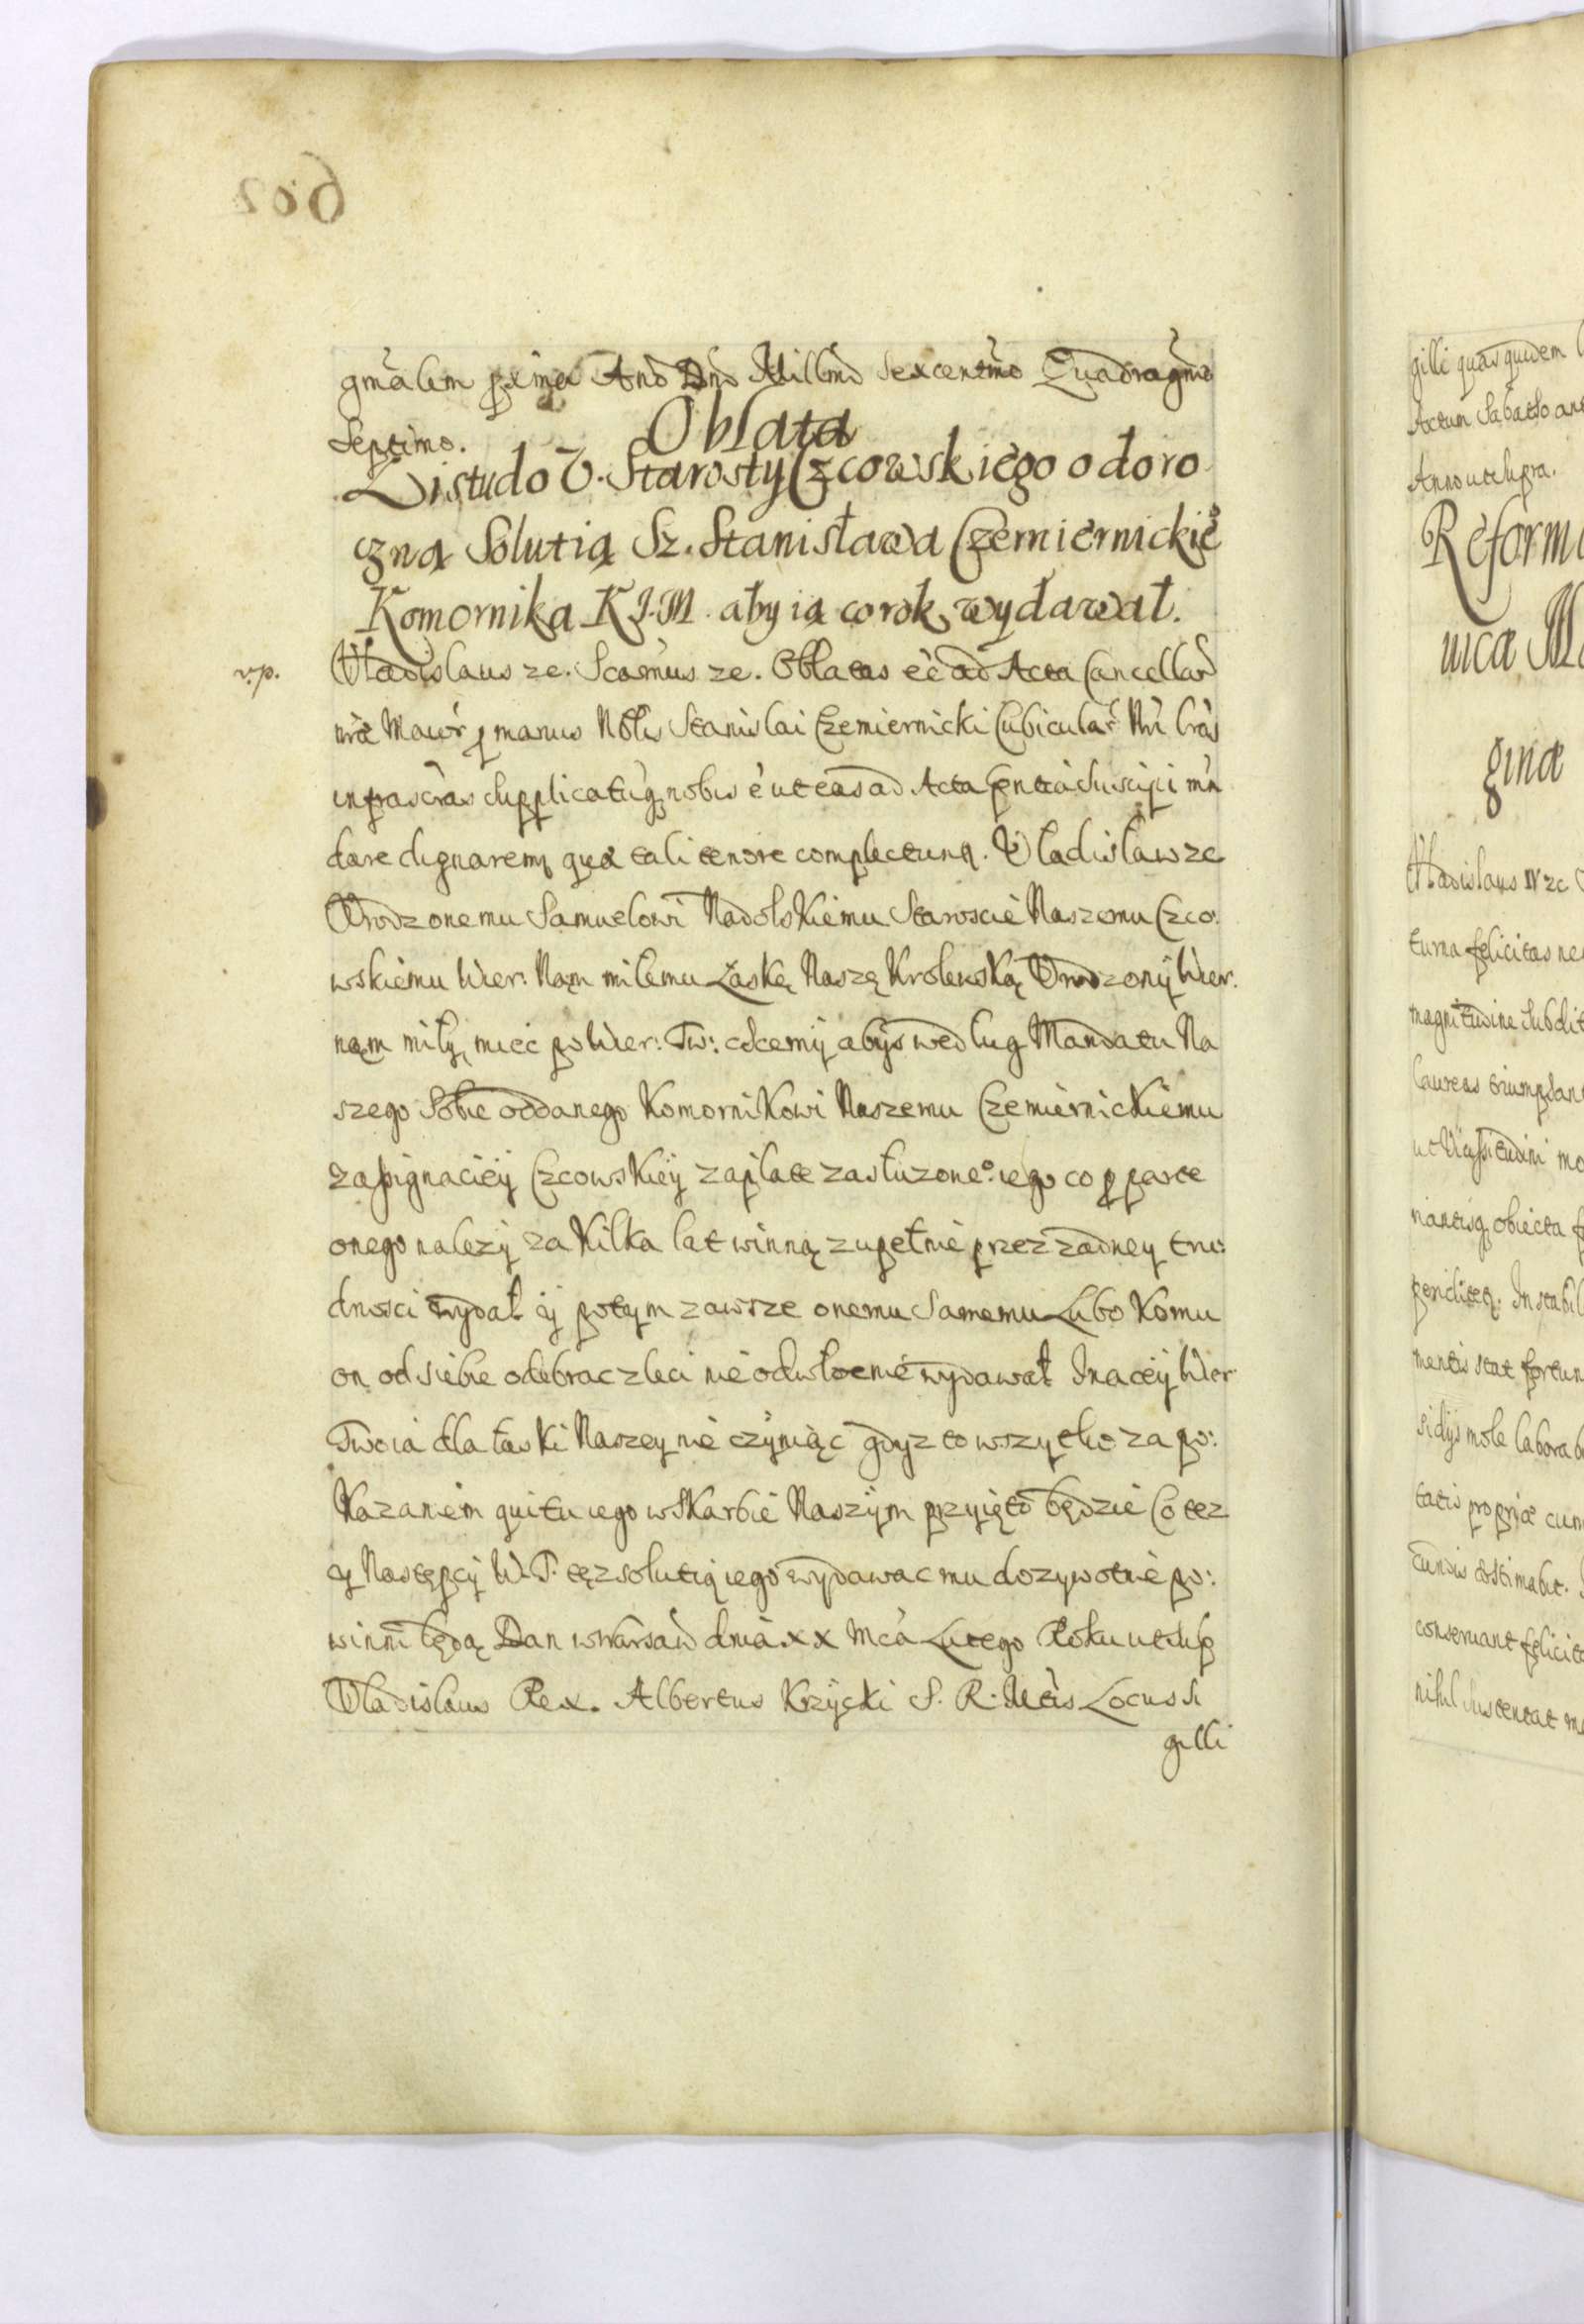 602
gmalem pximã Anõ Dnĩ Millmõ Sexcentmo Quadragmo
Septimo. Oblata
Listu do V. Starosty Czcowskiego o doro
czną Solutią Sz. Stanisława Czemiernickieº
Komornika K J. M. aby ią co rok wydawał.
v.p.
Vladislaus zc. Scamus zc. Oblatas eē ad Acta Cancellar
nrae Maior p manus Noblis Stanislai Czemiernicki Cubicular Nri lras
infrascras supplicatuq nobis e ut eas ad Acta pntia suscipi man
dare dignaremr quae tali tenore complectunr. Vladisław zc
Vrodzonemu Samuelowi Nadolskiemu Staroscie Naszemu Czco:
wskiemu Wier. Nam milemu Łaskę Naszę Krolewską Vrodzony Wier.
nam miły, miec po Wier: Tw: chcemy abys według Mandatu Na
szego Sobie oddanego Komornikowi Naszemu Czemiernickiemu
onego nalezy za kilka lat winną zupełnie przez zadney tru:
dnosci wydał y potym zawsze onemu Samemu Lubo Komu
on od siebie odebrac zleci nie odwłocnie wydawał Inaczy Wier
Twoia dla łaski Naszey nie czyniąc gdyz to wszytko za po:
kazaniem quitu iego w Skarbie Naszym przyięto będzie Co tez
y Następcy W. T. tęz solutią iego wydawac mu dozywotnie po:
winni będą Dan w Warsaw dnia xx Mca Lutego Roku ut sup
Vladislaus Rex. Albertus Krzycki S. R. Mtis Locus Si
gilli
gilli quas quidem
Actum Sabatho ant
Anno ut supra.
Reform
nica
ginae
Vladislaus IV zc
turna felicitas ne
magnitudine Subdit
laureas triumphan
obiecta
mentis stat fortun
sidys mole labora
tatis propriae cum
conseruant felicit
nihil sustentat